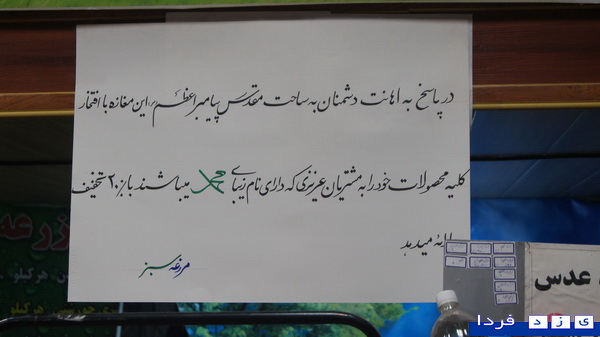 در پاسخ به اهانت دشمنان به ساحت مقدس پیامبر اعظم (ص) این مغازه با افتخار
کلیه محصولات خود را به مشتریان عزیزی که دارای نام زیبای محمد میباشند با ۲۰٪ تخفیف
ارایه میدهد
مزرعه سبز
عدس
یزد فردا